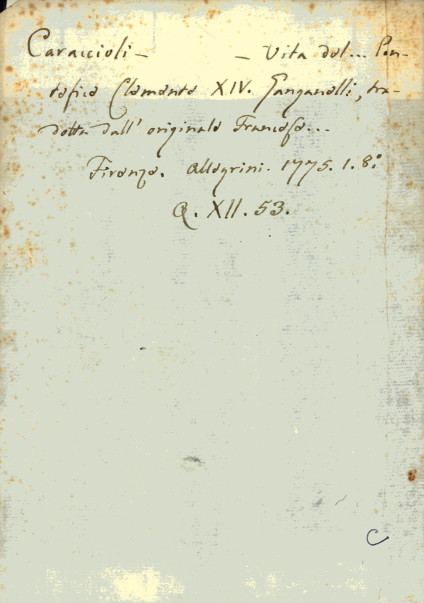 Caraccioli - - Vita del... Pon-
tefice Clemente XIV. Ganganelli, tra-
dotta dall' originale Francese...
Firenze. Allegrini. 1775. 1. 8.°
Q. XII. 53.
C